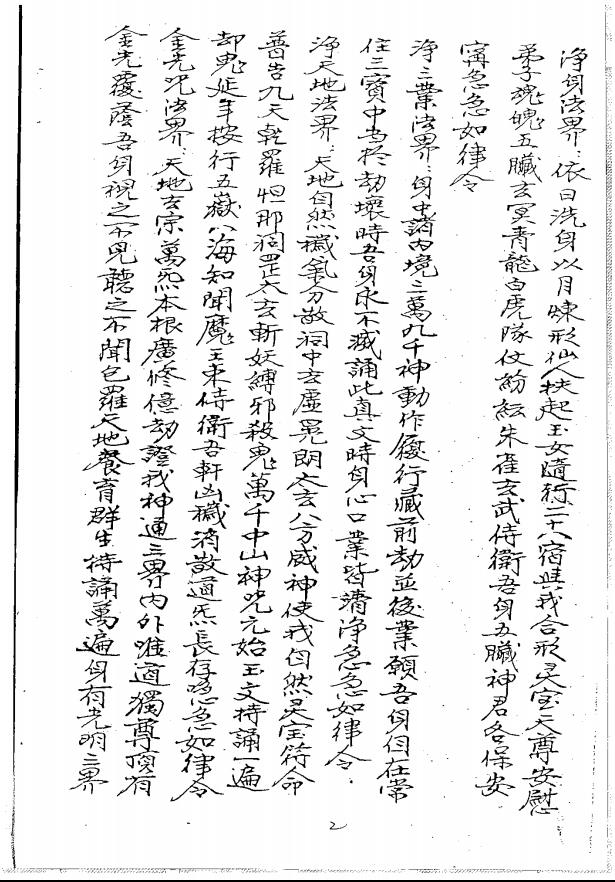 淨身法界：依日洗身以月煉形仙人扶起玉女隨行二十八宿與我合形灵宝天尊安慰
弟子魂魄五臟玄冥青龍白虎隊仗紛紜朱雀玄武侍衛吾身五臟神君各保安
寗急急如律令
淨三業法界：身中諸內境三萬九千神動作履行藏前劫並後業願吾身自在常
住三寳中当於劫壞時吾身永不滅誦此真文時身心口業皆清淨急急如律令．
淨天地法界：天地自然穢氣分散洞中玄虛晃朗太玄八方威神使我自然灵宝符命
普告九天乾羅怛那洞罡太玄斬妖縛邪殺鬼萬千中山神咒元始玉文持誦一遍
却鬼延年按行五嶽八海知聞魔王束侍衛吾軒凶穢消散道炁長存急急如律令
金光咒法界：天地玄宗萬炁本根廣修億劫證我神通三界內外唯道獨尊頂有
金光覆蔭吾身視之不見聽之不聞包羅天地養育群生持誦萬遍身有光明三界
2